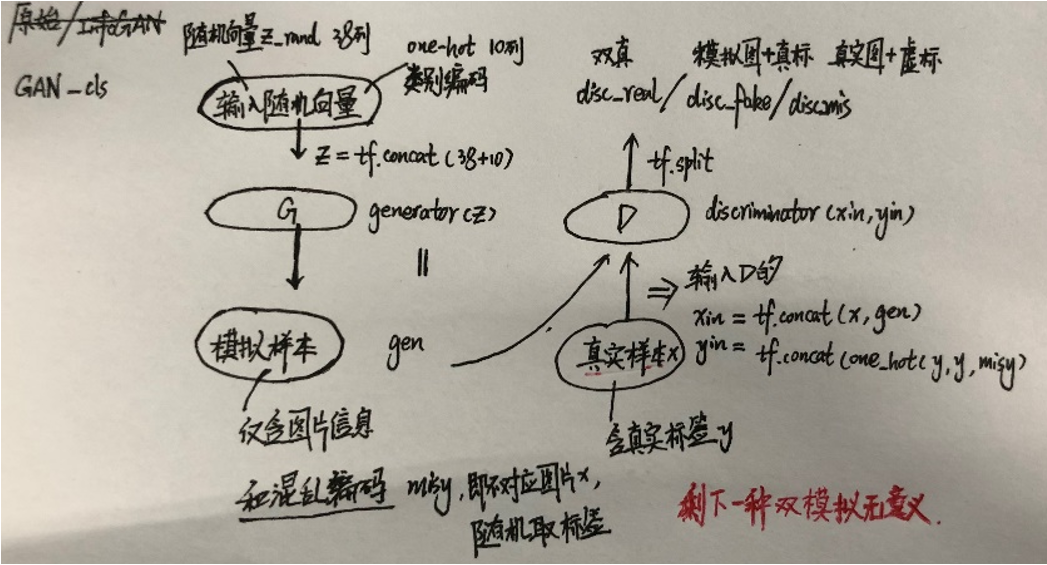 原始/InfoGAN
GAN_cls
随机向量z_rand 38列
one-hot 10列
类别编码
输入随机向量
z = tf.concat(38+10)
G
generator(z)
=
模拟样本
gen
仅含图片信息
和混乱编码 misy,即不对应图片x,
随机取标签
双真
模拟图+真标 真实图+虚标
disc_real/disc_fake/disc_mis
tf.split
D
discriminator(xin,yin)
⇒ 输入D的
xin = tf.concat(x,gen)
yin = tf.concat(one_hot(y,y,misy)
真实样本x
含真实标签y
剩下一种双模拟无意义.